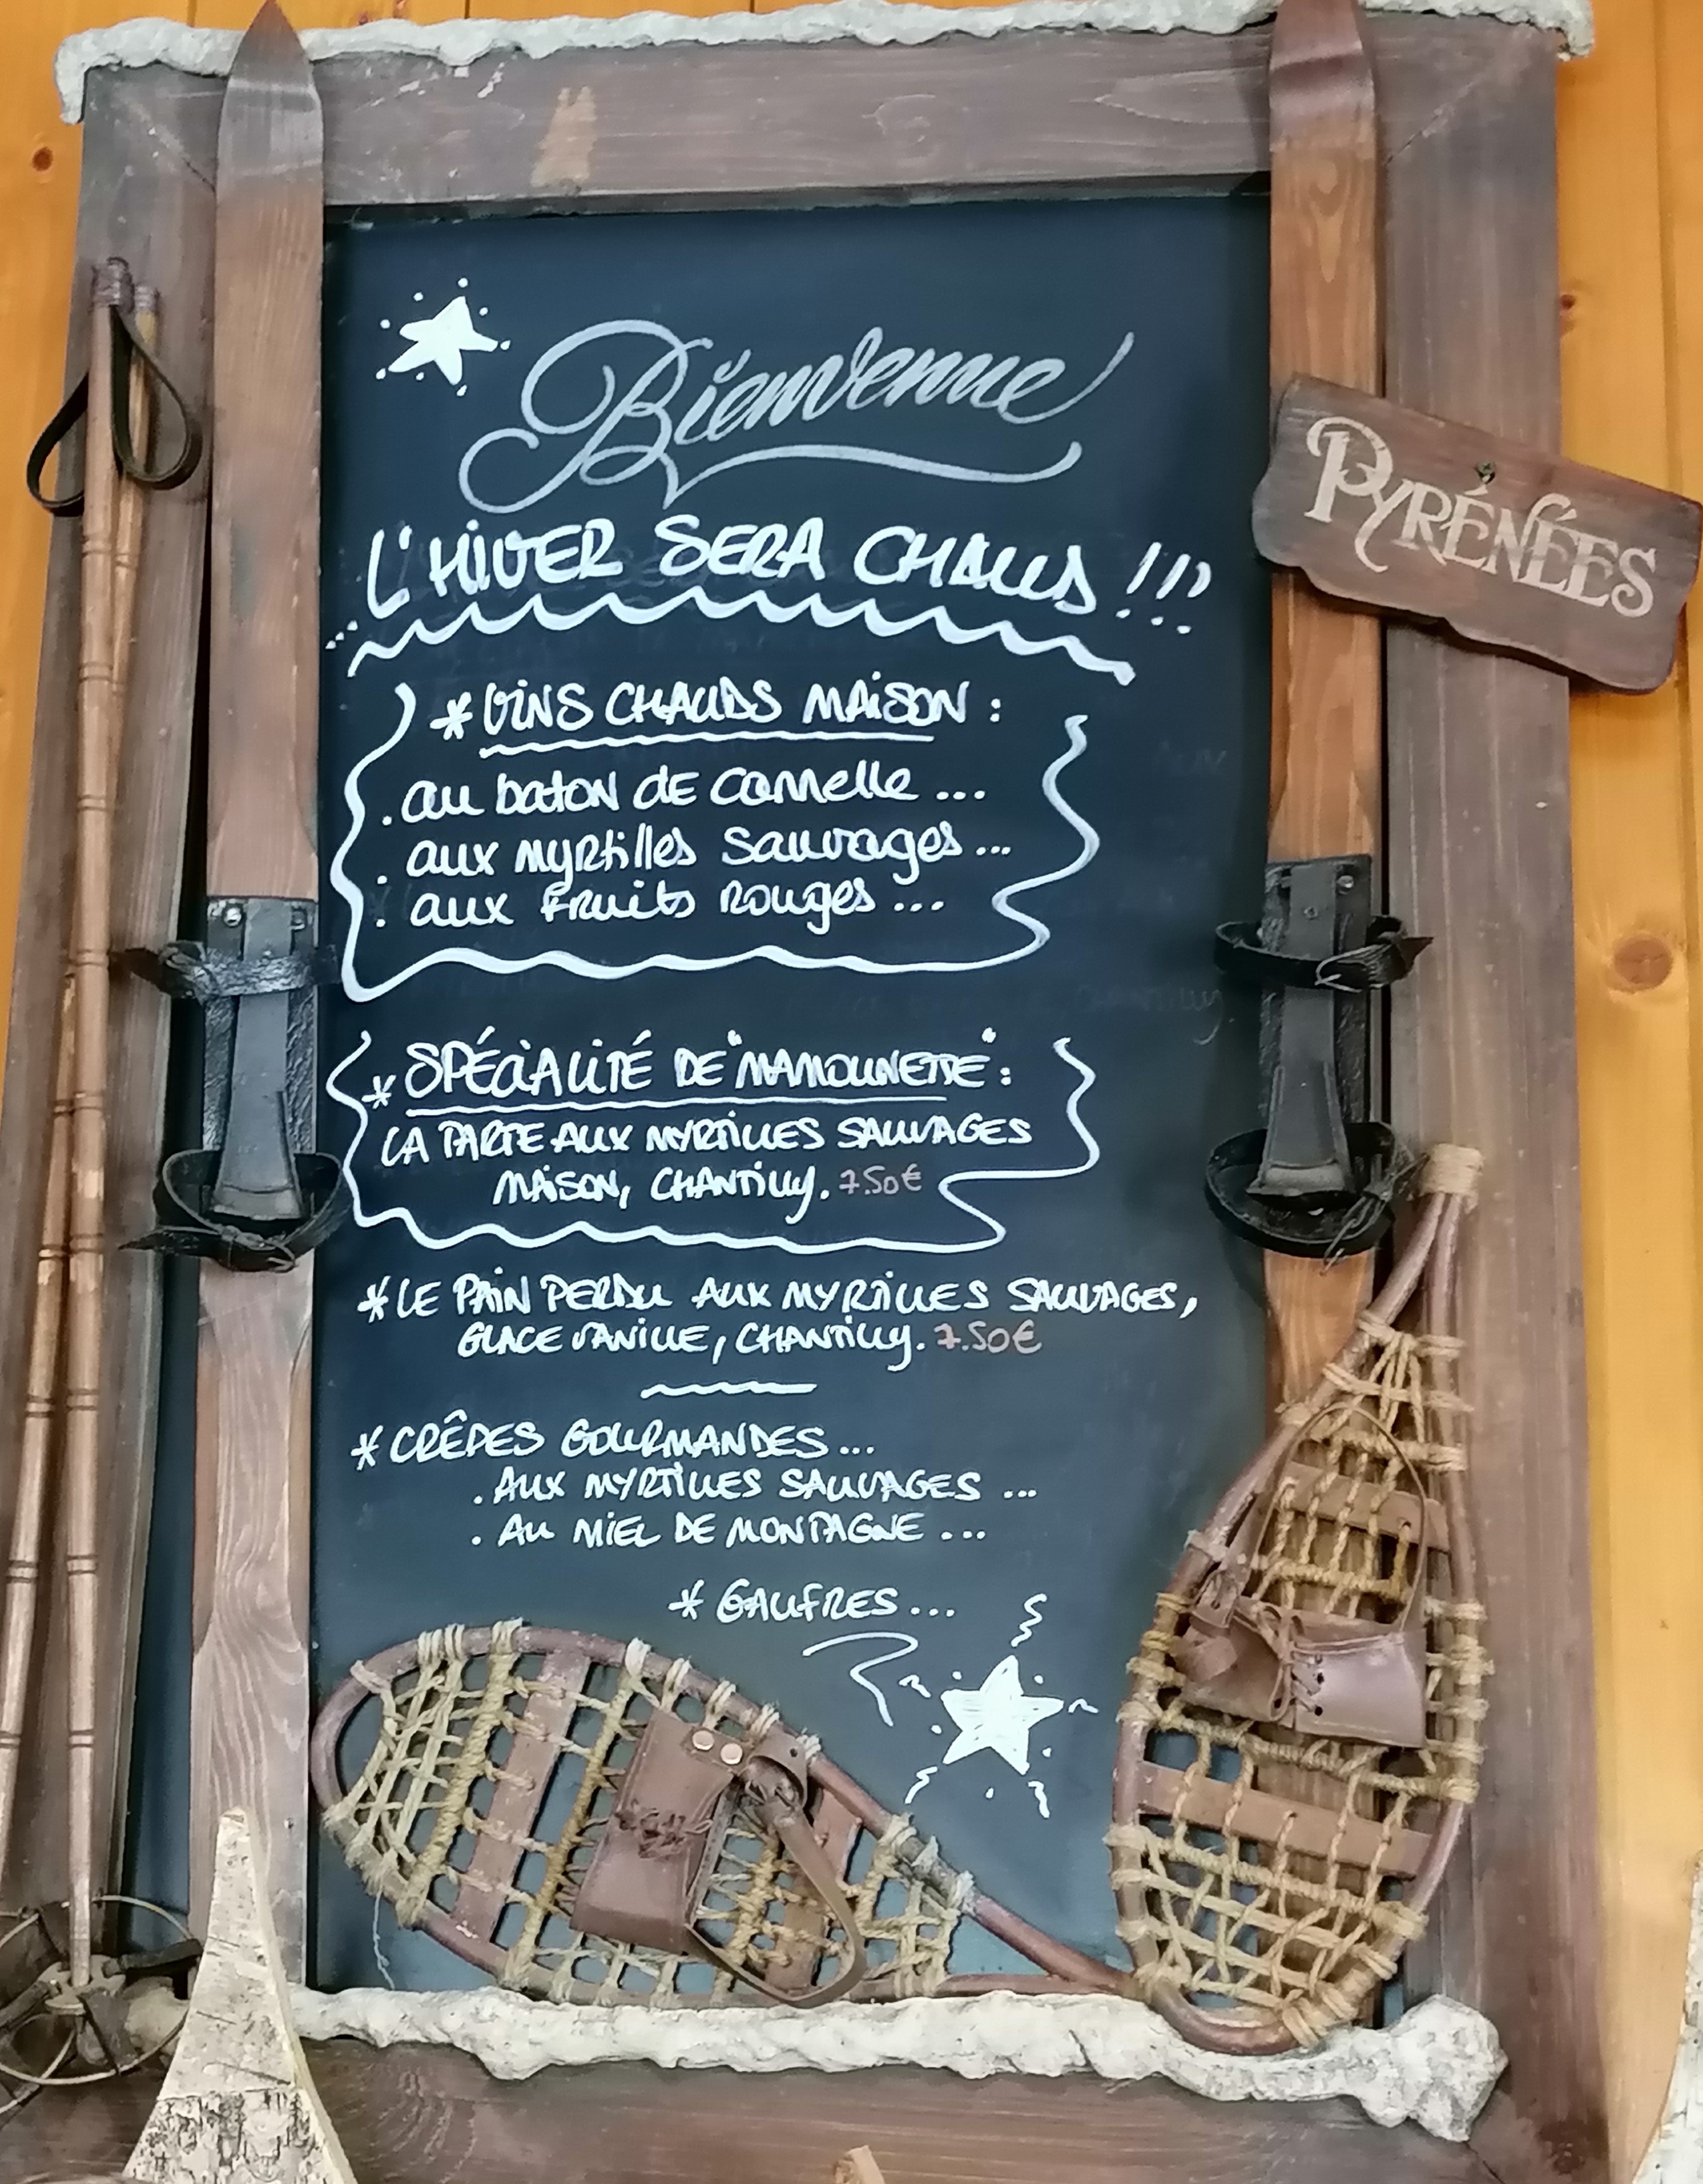 Bienvenue
PYRÉNÉES
L'HIVER SERA CHAUD !!!
* VINS CHAUDS MAISON :
. au baton de cannelle ...
. aux myrtilles sauvages ...
. aux fruits rouges ...
* SPÉCIALITÉ DE "MAMOUNETTE" :
LA TARTE AUX MYRTILLES SAUVAGES
MAISON, CHANTILLY. 7.50€
* LE PAIN PERDU AUX MYRTILLES SAUVAGES,
GLACE VANILLE, CHANTILLY. 7.50€
* CRÊPES GOURMANDES ...
. AUX MYRTILLES SAUVAGES ...
. AU MIEL DE MONTAGNE ...
* GAUFRES ...